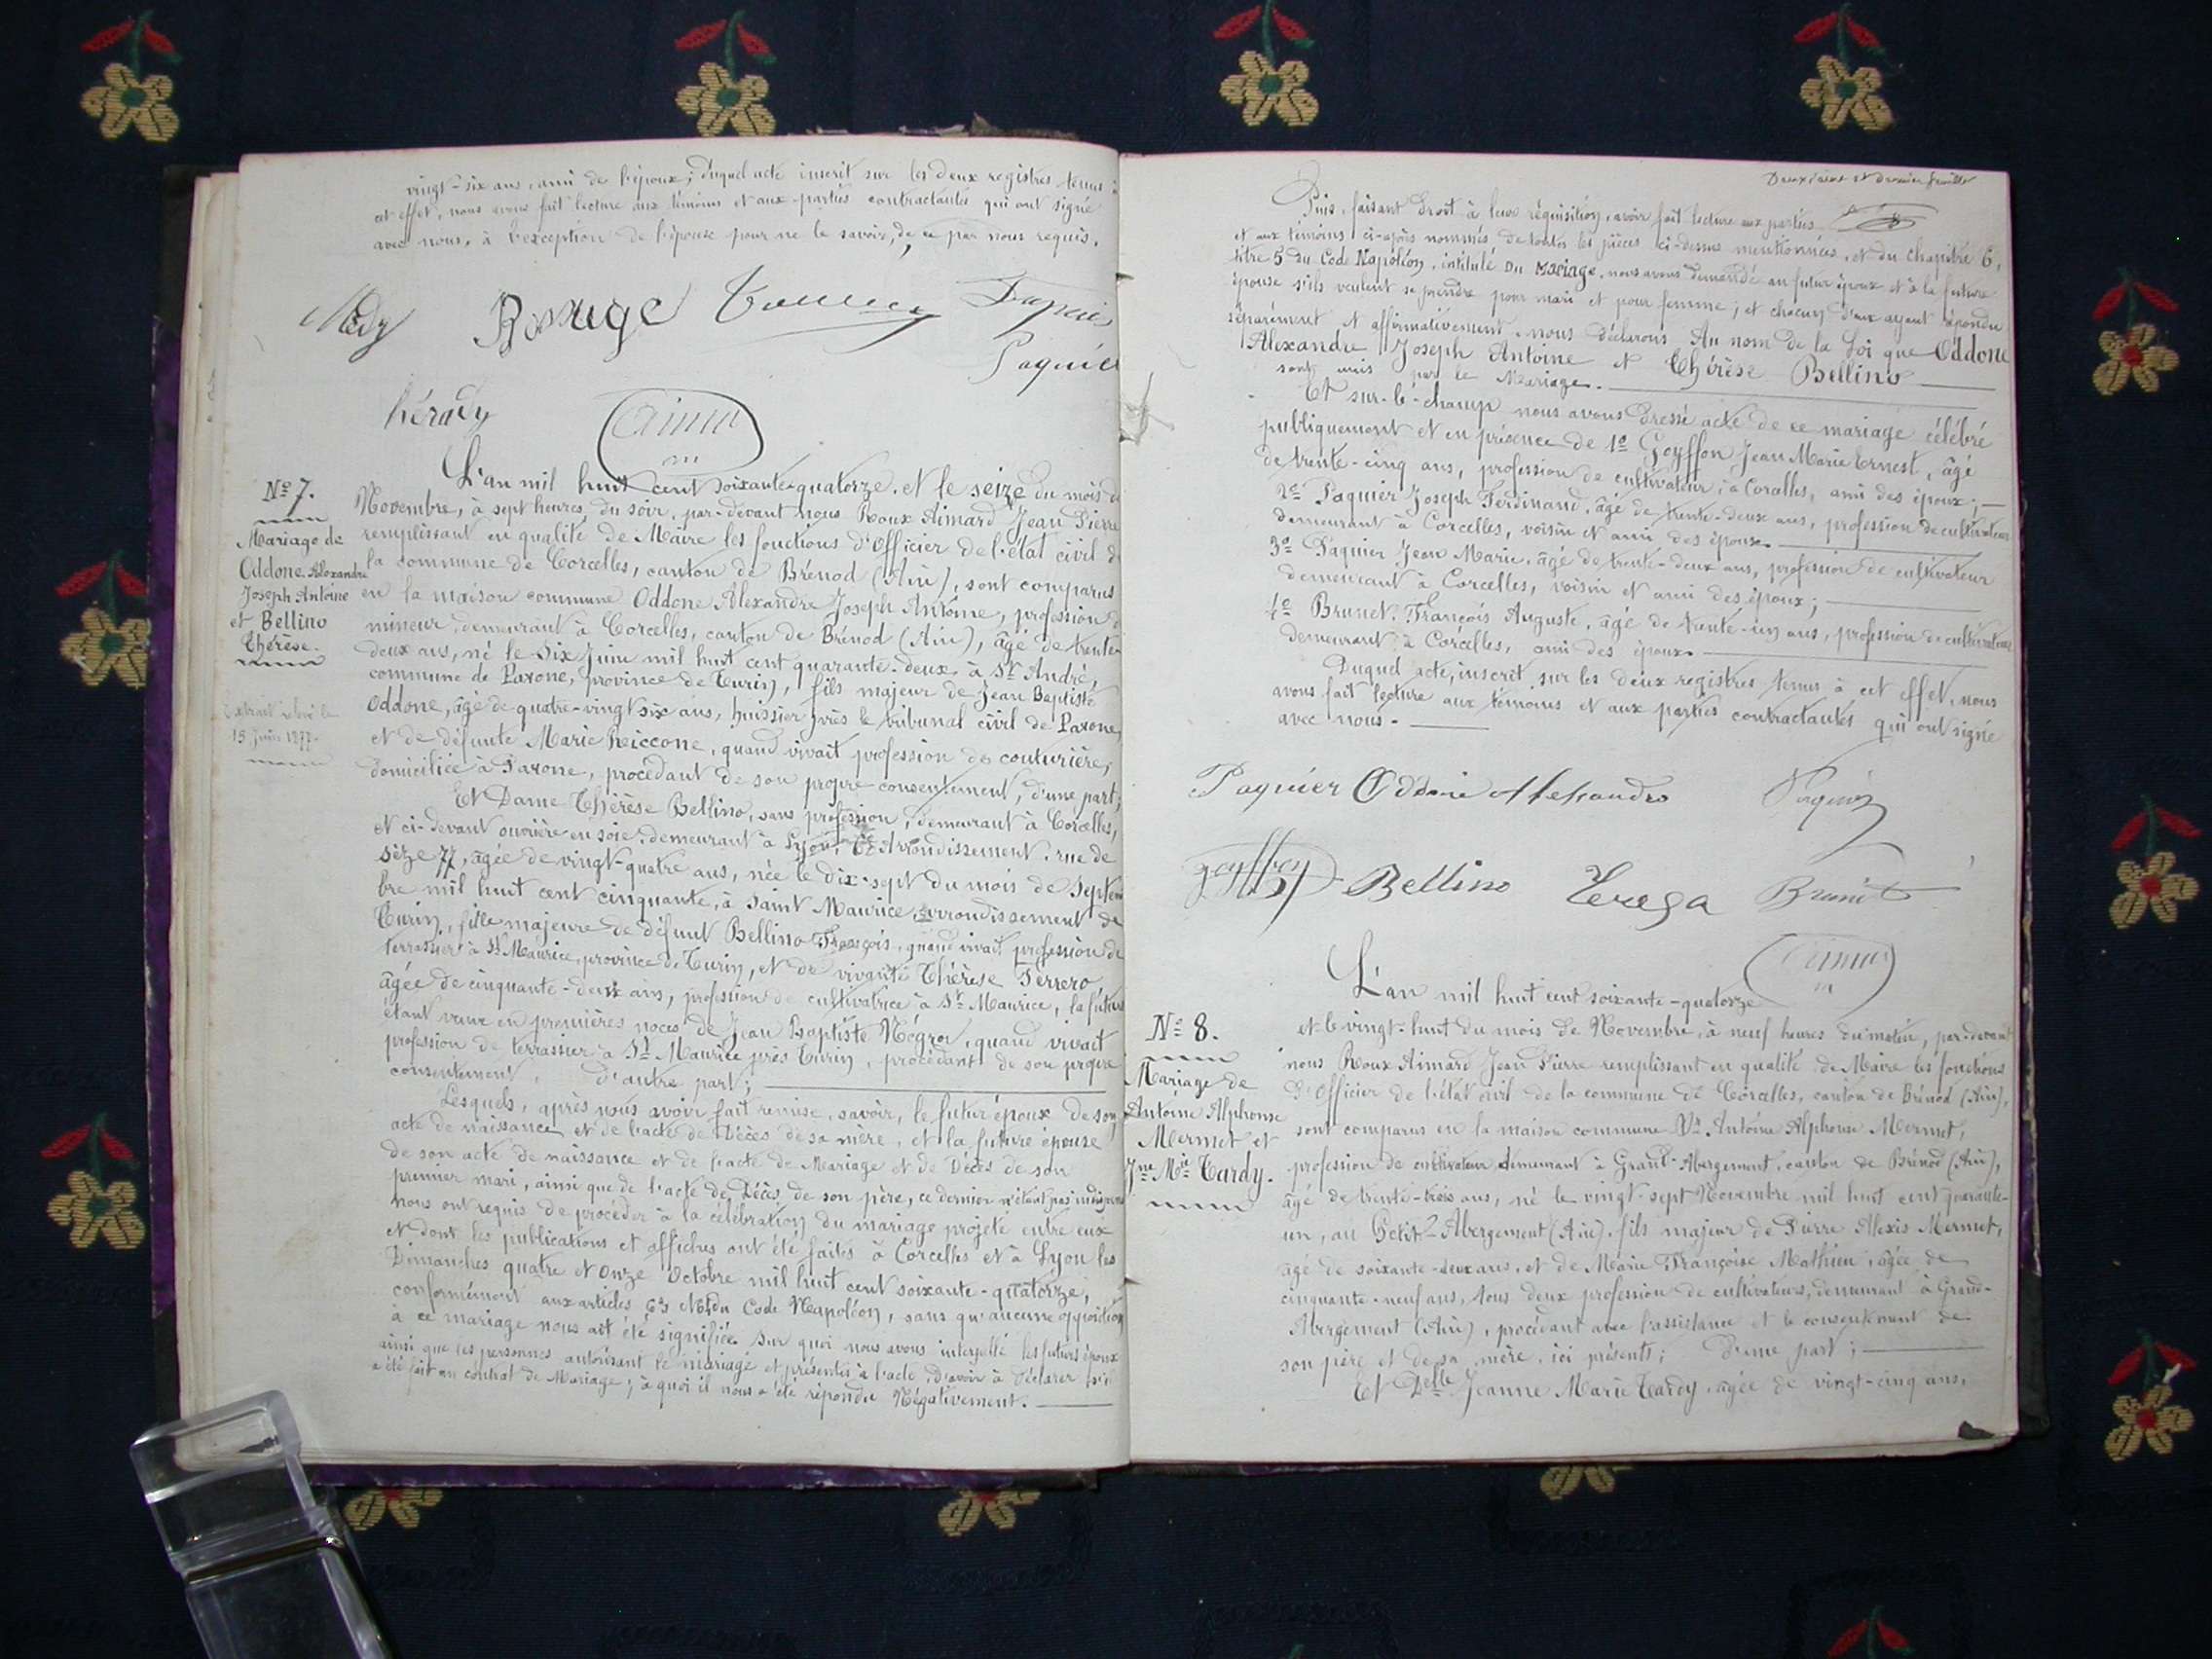 vingt-six ans, ami de l'époux; duquel acte inscrit sur les deux registres tenus à
cet effet, nous avons fait lecture aux témoins et aux parties contractantes qui ont signé
avec nous, à l'exception de l'épouse pour ne le savoir, de ce par nous requis.
Rouge
Paquier
hérady
Aimar
N° 7.
Mariage de
Oddone Alexandre
Joseph Antoine
et Bellino
Thérèse.
Extrait relevé le
15 Juin 1877.
L'an mil huit cent soixante-quatorze, et le seize du mois de
Novembre, à sept heures du soir, par-devant nous Roux Aimard Jean Pierre
remplissant en qualité de Maire les fonctions d'Officier de l'état civil de
la commune de Corcelles, canton de Brénod (Ain), sont comparus
en la maison commune Oddone Alexandre Joseph Antoine, profession de
mineur, demeurant à Corcelles, canton de Brénod (Ain), âgé de trente-
deux ans, né le six Juin mil huit cent quarante-deux à St André,
commune de Parone, province de Turin, fils majeur de Jean Baptiste
Oddone, âgé de quatre-vingt six ans, huissier près le tribunal civil de Parone,
et de défunte Marie Reiccone, quand vivait profession de couturière,
domiciliée à Parone, procédant de son propre consentement, d'une part;
Et Dame Thérèse Bellino, sans profession, demeurant à Corcelles,
et ci-devant ouvrière en soie, demeurant à Lyon, Arrondissement, rue de
Sèze 77, âgée de vingt-quatre ans, née le dix-sept du mois de Septem
bre mil huit cent cinquante, à Saint Maurice, arrondissement de
Turin, fille majeure de défunt Bellino François, quand vivait profession de
terrassier à St Maurice, province de Turin, et de vivante Thérèse Ferrero,
âgée de cinquante-deux ans, profession de cultivatrice à St Maurice, la future
étant veuve en premières noces de Jean Baptiste Négro, quand vivait
profession de terrassier à St Maurice près Turin, procédant de son propre
consentement, d'autre part;
Lesquels, après nous avoir fait remise, savoir, le futur époux de son
acte de naissance et de l'acte de Décès de sa mère, et la future épouse
de son acte de naissance et de l'acte de Mariage et de Décès de son
premier mari, ainsi que de l'acte de Décès de son père, ce dernier n'étant pas
nous ont requis de procéder à la célébration du mariage projeté entre eux
et dont les publications et affiches ont été faites à Corcelles et à Lyon les
Dimanches quatre et onze Octobre mil huit cent soixante-quatorze,
conformément aux articles 63 et du Code Napoléon, sans qu'aucune opposition
à ce mariage nous ait été signifiée. Sur quoi nous avons interpellé les futurs époux
ainsi que les personnes autorisant le mariage et présentes à l'acte, d'avoir à déclarer s'il
a été fait un contrat de Mariage; à quoi il nous a été répondu Négativement.
Deuxième et dernier feuillet
Puis, faisant droit à leur réquisition, avoir fait lecture aux parties
et aux témoins ci-après nommés, de toutes les pièces ci-dessus mentionnées, et du chapitre 6,
titre 5 du Code Napoléon, intitulé Du Mariage, nous avons demandé au futur époux et à la future
épouse s'ils veulent se prendre pour mari et pour femme; et chacun d'eux ayant répondu
séparément et affirmativement, nous déclarons Au nom de la Loi que Oddone
Alexandre Joseph Antoine et Thérèse Bellino
sont unis par le Mariage.
Et sur-le-champ nous avons dressé acte de ce mariage célébré
publiquement et en présence de 1° Goyffon Jean Marie Ernest, âgé
de trente-cinq ans, profession de cultivateur, à Coralles, ami des époux;
2° Paquier Joseph Ferdinand, âgé de trente-deux ans, profession de cultivateur
demeurant à Corcelles, voisin et ami des époux.
3° Paquier Jean Marie, âgé de trente-deux ans, profession de cultivateur
demeurant à Corcelles, voisin et ami des époux;
4° Brunet François Auguste, âgé de trente-un ans, profession de cultivateur
demeurant à Corcelles, ami des époux.
Duquel acte, inscrit sur les deux registres tenus à cet effet, nous
avons fait lecture aux témoins et aux parties contractantes qui ont signé
avec nous.
Paquier Oddone Alessandro Paquier
goyffon Bellino Terega Brunet
Aimar
N° 8.
Mariage de
Antoine Alphonse
Mermet et
Jne Mie Tardy.
L'an mil huit cent soixante-quatorze
et le vingt-huit du mois de Novembre, à neuf heures du matin, par-devant
nous Roux Aimard Jean Pierre remplissant en qualité de Maire les fonctions
d'Officier de l'état civil de la commune de Corcelles, canton de Brénod (Ain),
sont comparus en la maison commune Antoine Alphonse Mermet,
profession de cultivateur, demeurant à Grand-Abergement, canton de Brénod (Ain),
âgé de trente-trois ans, né le vingt-sept Novembre mil huit cent quarante-
un, au Petit-Abergement (Ain), fils majeur de Pierre Alexis Mermet,
âgé de soixante-deux ans, et de Marie Françoise Mathieu, âgée de
cinquante-neuf ans, tous deux profession de cultivateurs, demeurant à Grand-
Abergement (Ain), procédant avec l'assistance et le consentement de
son père et de sa mère, ici présents; d'une part;
Et Delle Jeanne Marie Tardy, âgée de vingt-cinq ans,